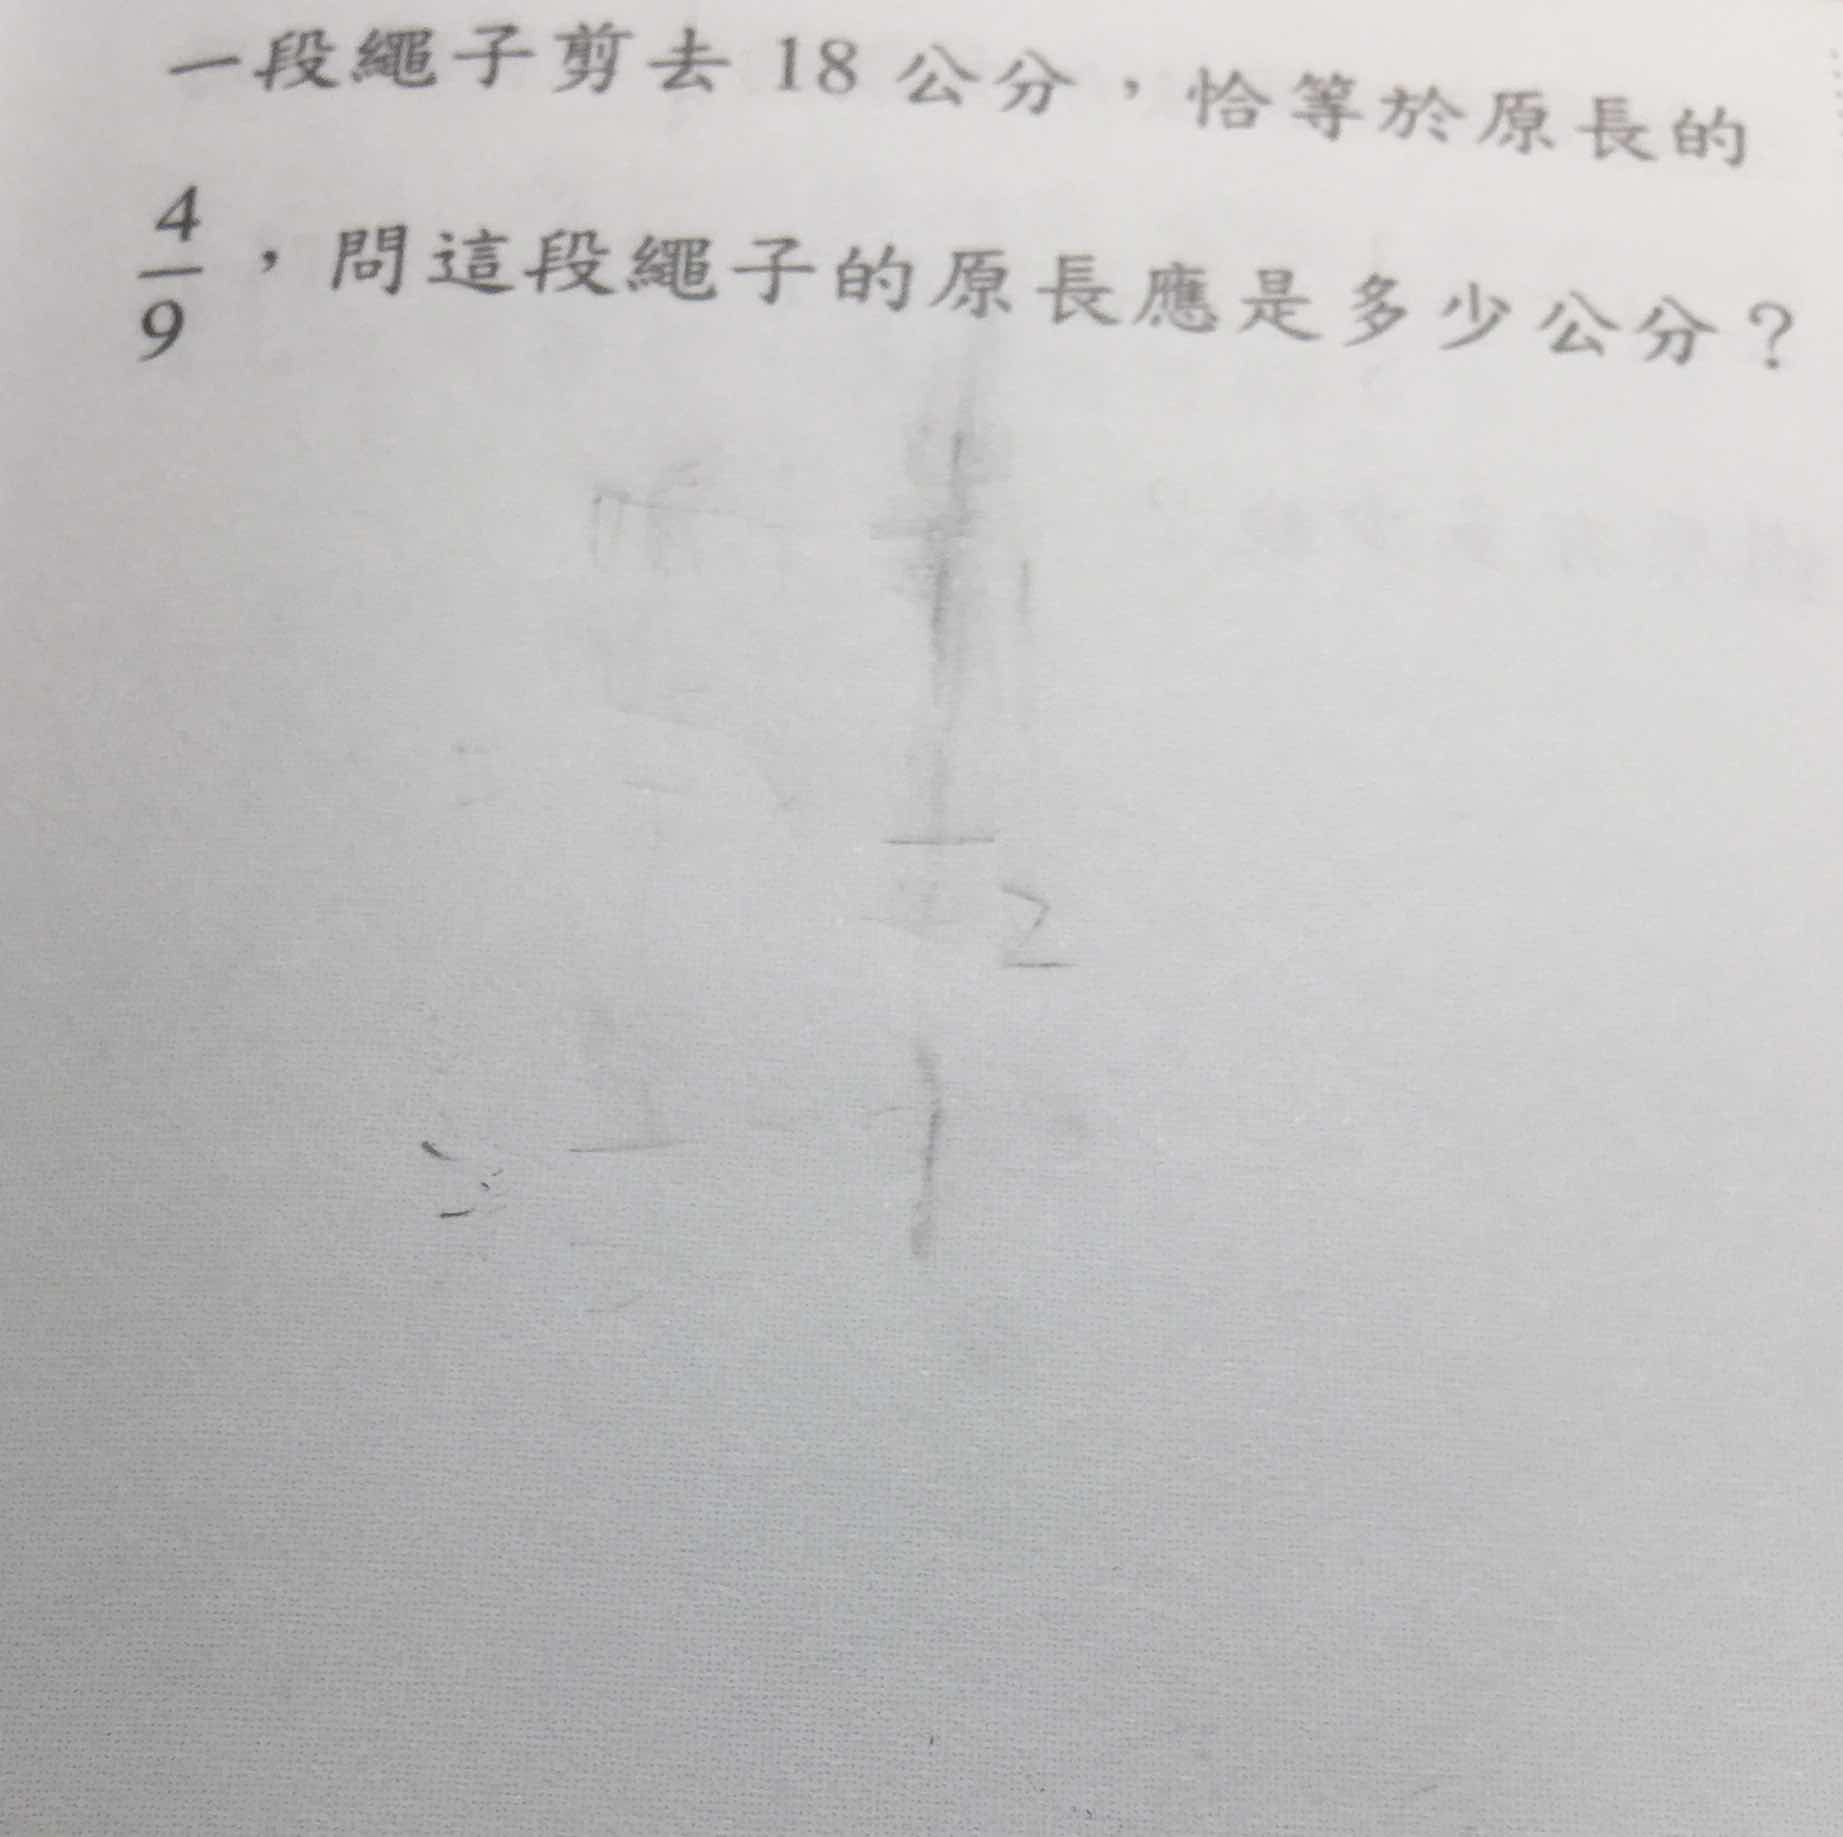 一段繩子剪去 18 公分，恰等於原長的
4/9，問這段繩子的原長應是多少公分？
2